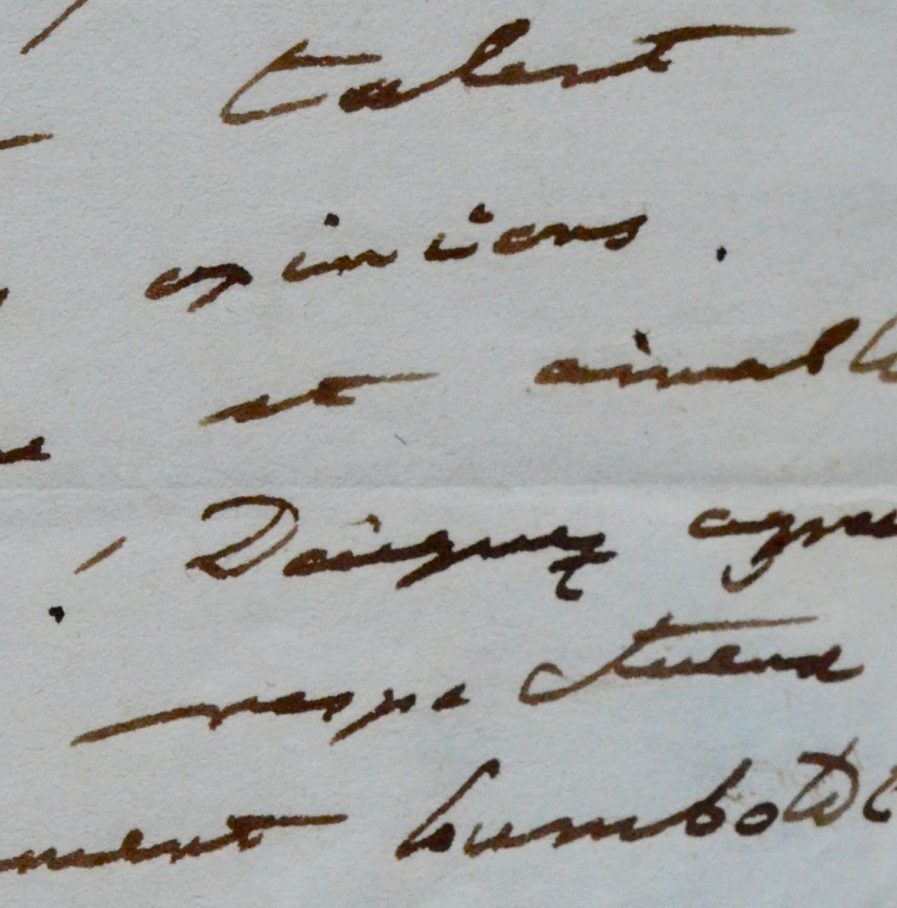 talent
opinions.
et aimable
! Daignez agrée
respectueux
ment Humboldt